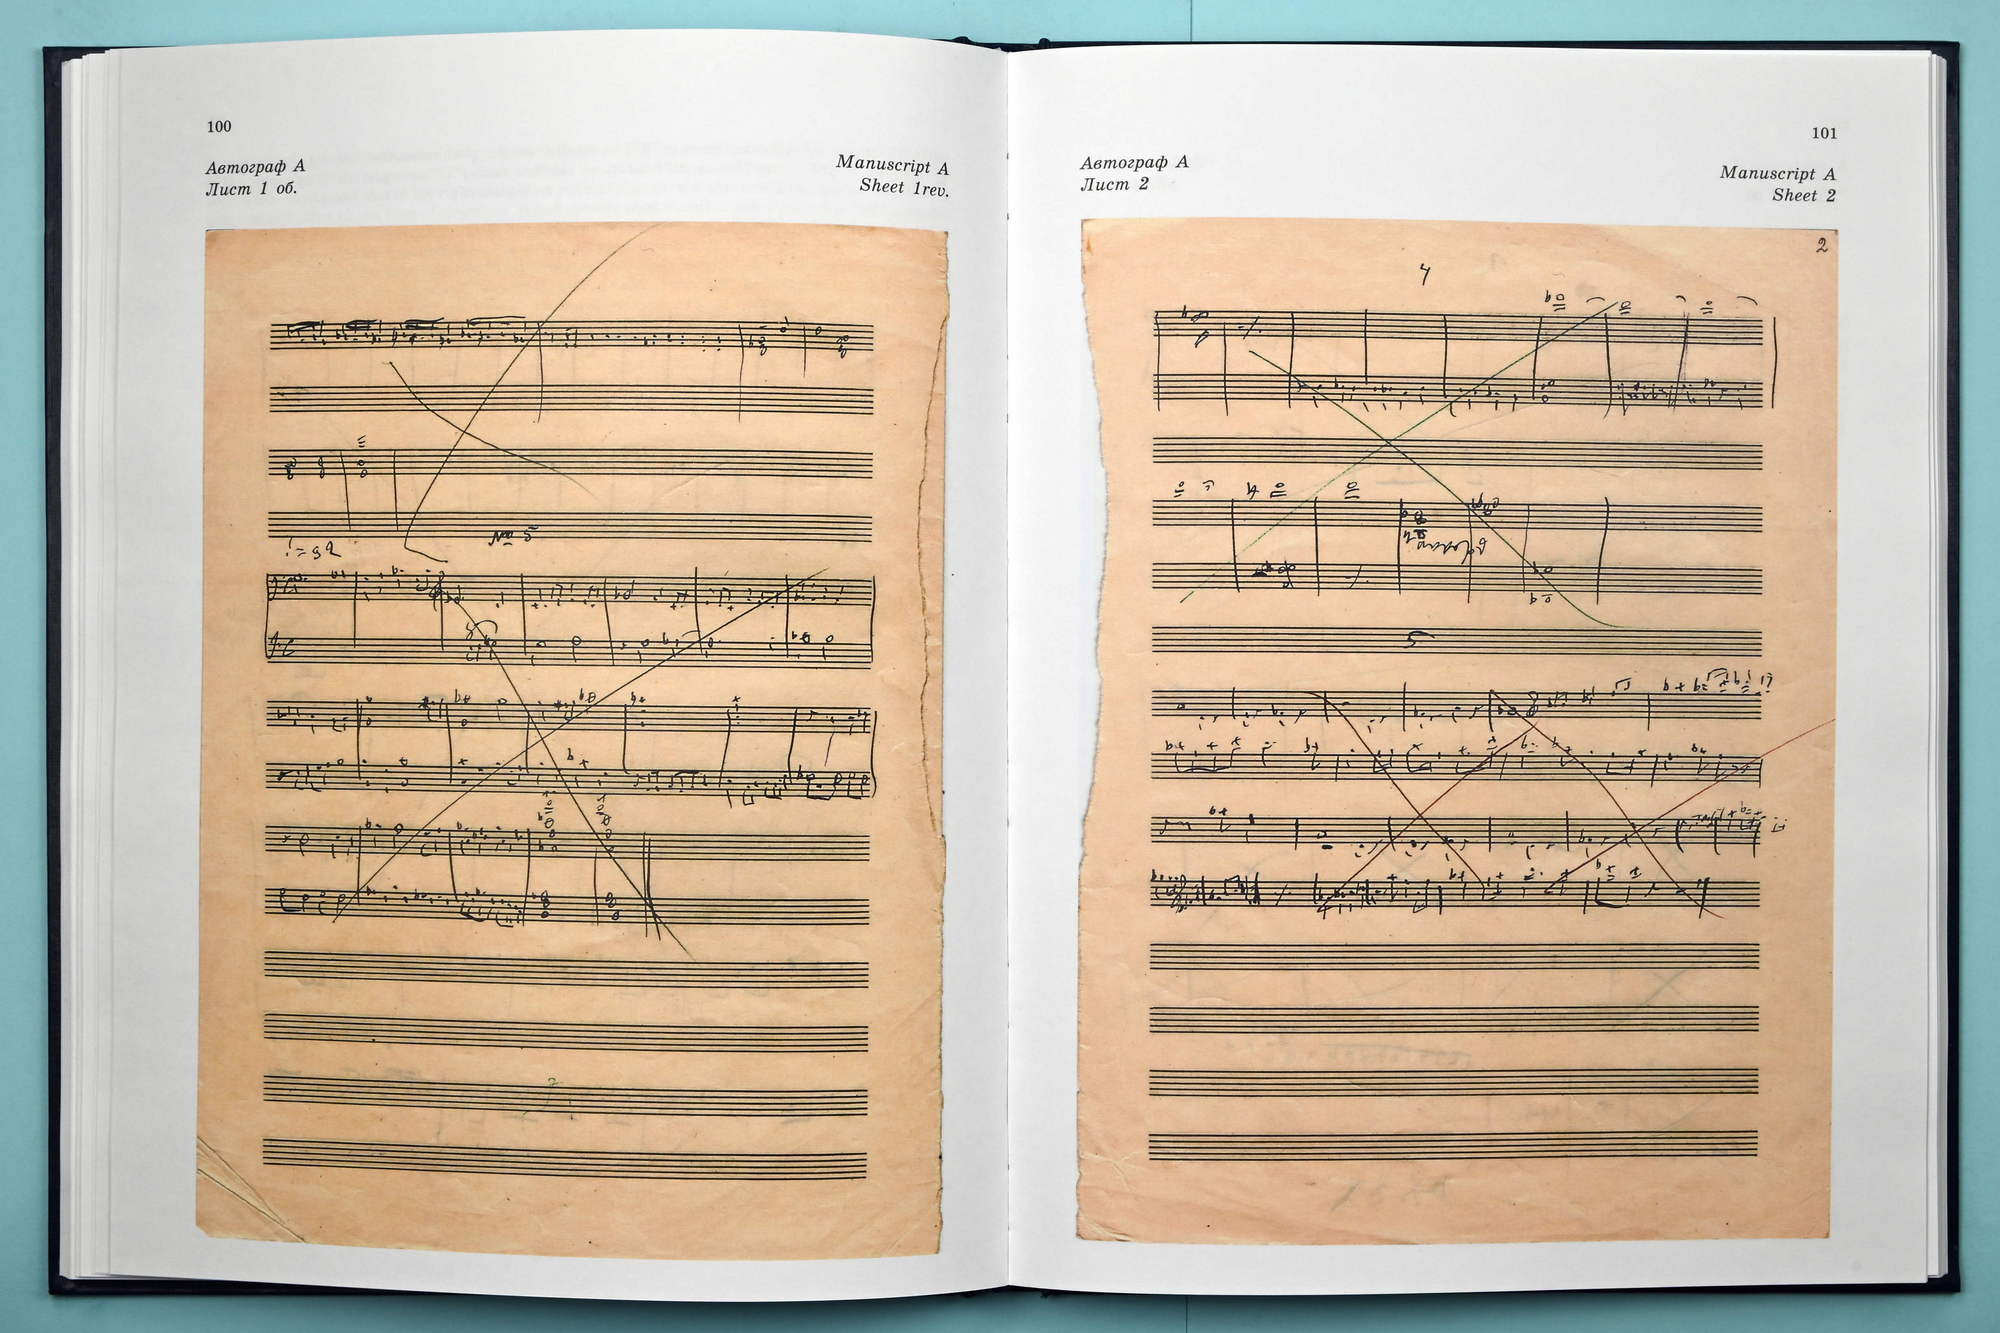 100
Автограф А
Лист 1 об.
Manuscript A
Sheet 1rev.
101
Автограф А
Лист 2
Manuscript A
Sheet 2
2
4
5